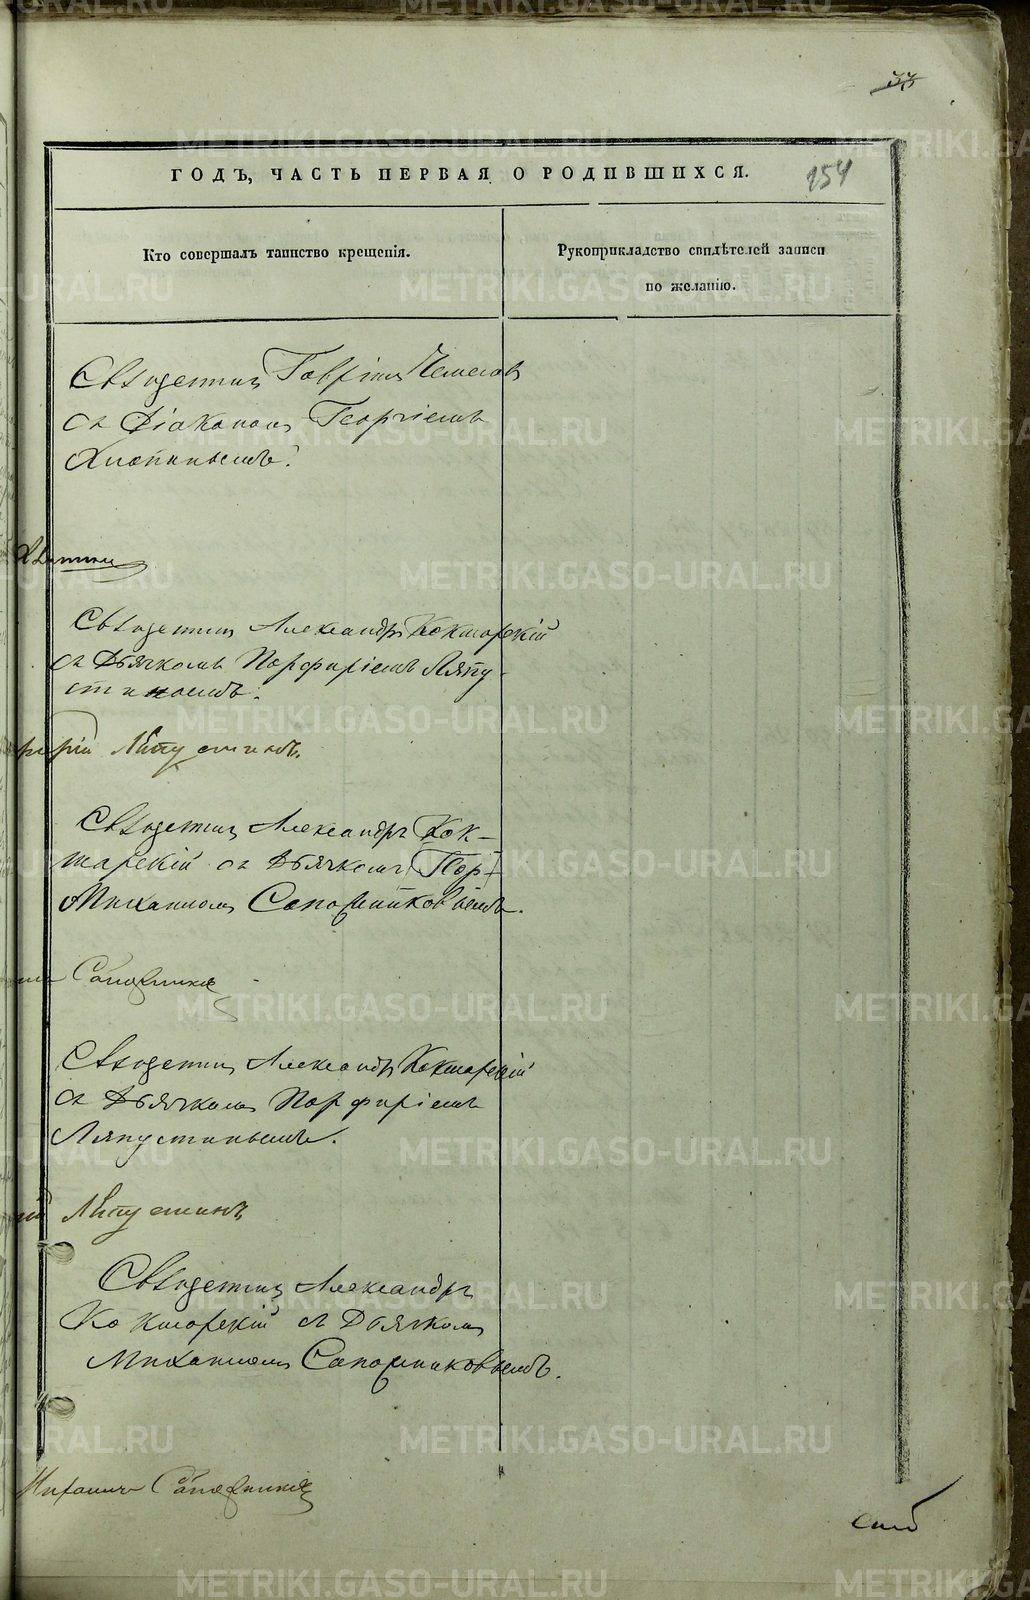 154
ГОДЪ, ЧАСТЬ ПЕРВАЯ О РОДИВШИХСЯ.
Кто совершалъ таинство крещенія.
Рукоприкладство свидѣтелей записи
по желанію.
Священникъ Гавріилъ
съ Діакономъ Георгіемъ
Хлопинымъ.
Священникъ Александръ Кокшарскій
съ Дьячкомъ Порфиріемъ Ляпу-
стинымъ.
Ляпустинъ
Священникъ Александръ Кок-
шарскій съ Дьячкомъ (Пор)
Михаиломъ Сапожниковымъ.
Сапожниковъ
Священникъ Александръ Кокшарскій
съ Дьячкомъ Порфиріемъ
Ляпустинымъ.
Ляпустинъ
Священникъ Александръ
Кокшарскій съ Дьячкомъ
Михаиломъ Сапожниковымъ.
Михаилъ Сапожниковъ
METRIKI.GASO-URAL.RU